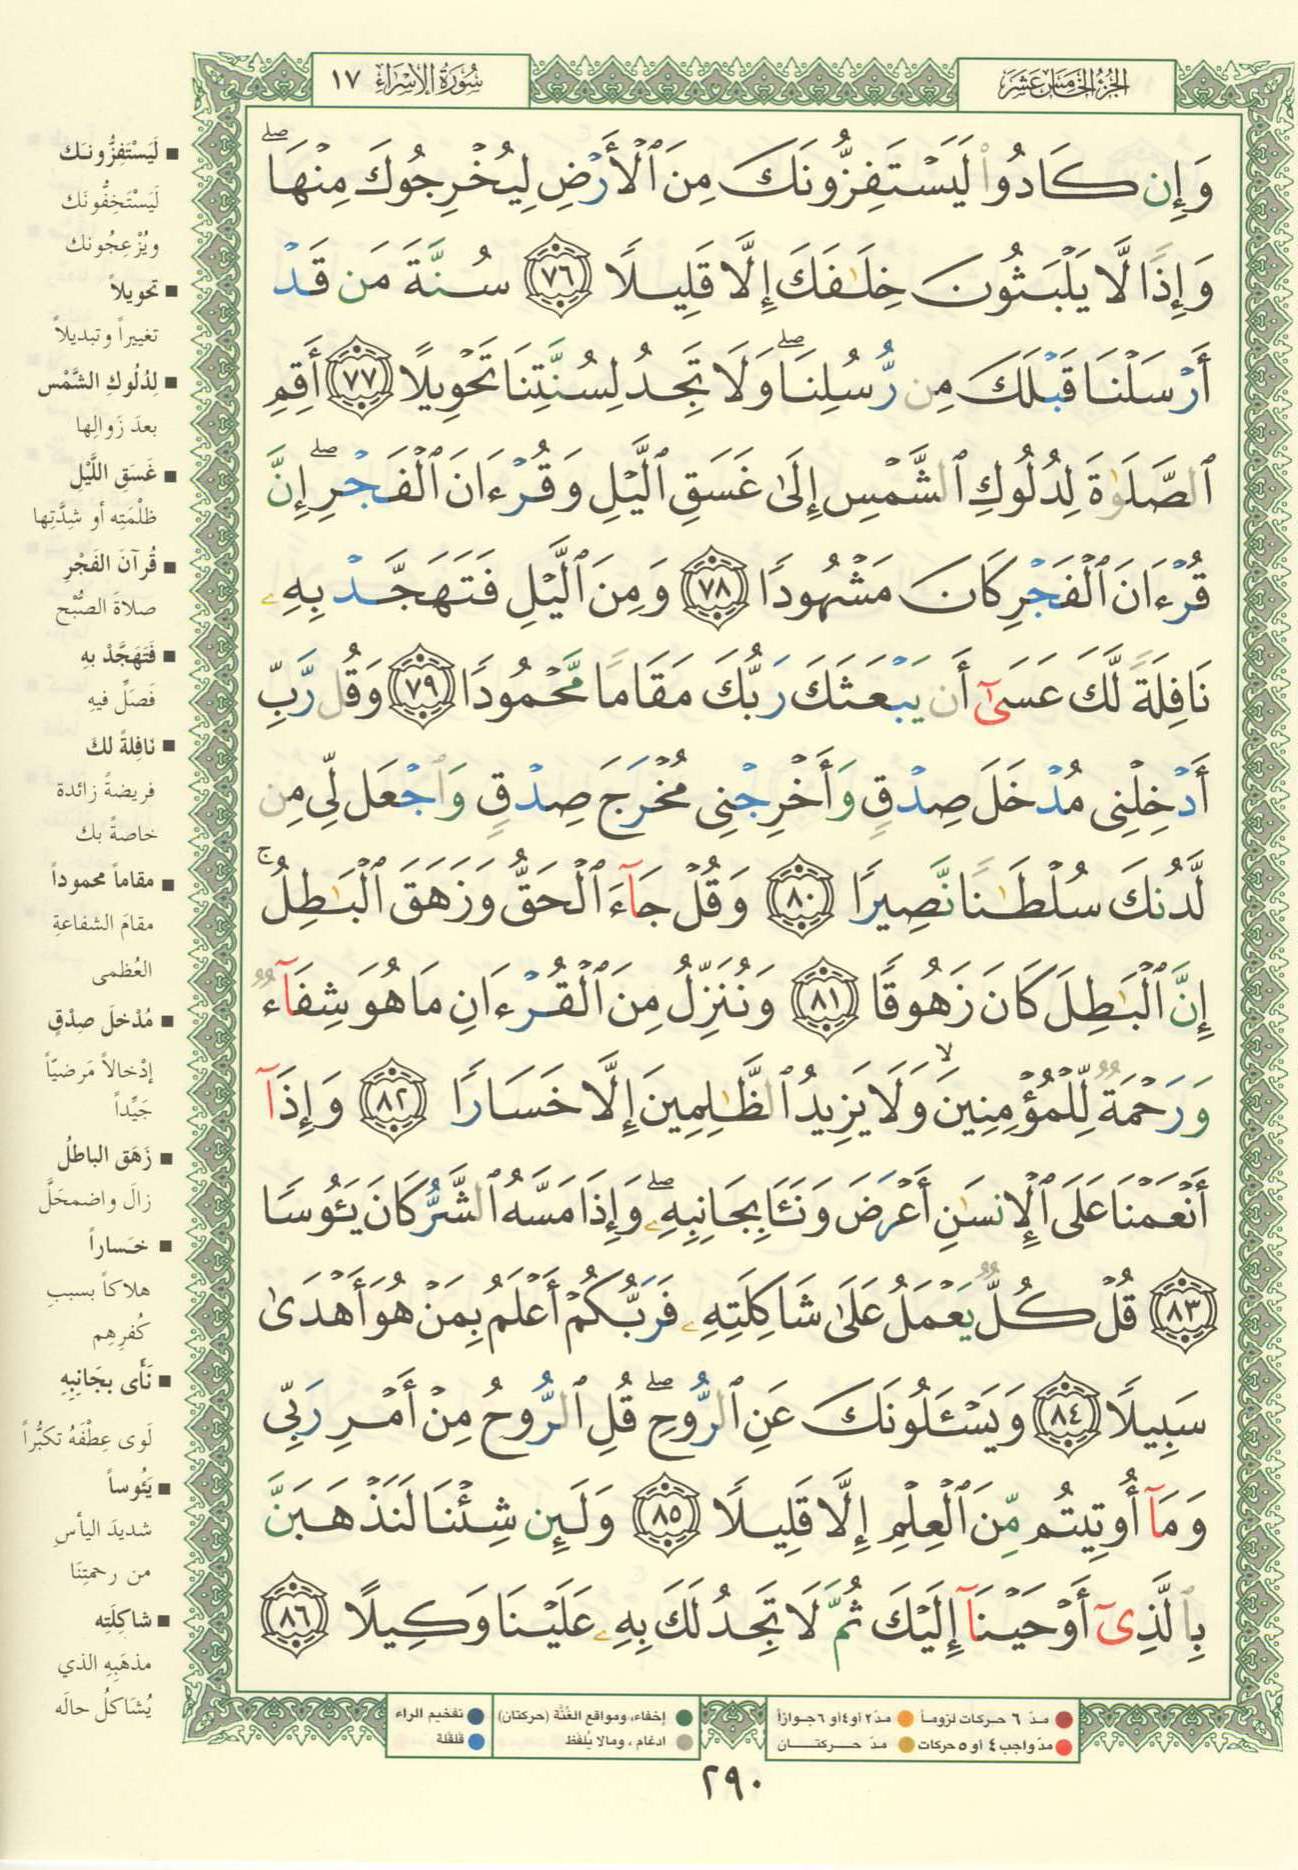 الجزء الخامس عشر
سورة الإسراء ١٧
وَإِن كَادُوا۟ لَيَسْتَفِزُّونَكَ مِنَ ٱلْأَرْضِ لِيُخْرِجُوكَ مِنْهَا ۖ
وَإِذًا لَّا يَلْبَثُونَ خِلَـٰفَكَ إِلَّا قَلِيلًا ٧٦ سُنَّةَ مَن قَدْ
أَرْسَلْنَا قَبْلَكَ مِن رُّسُلِنَا ۖ وَلَا تَجِدُ لِسُنَّتِنَا تَحْوِيلًا ٧٧ أَقِمِ
ٱلصَّلَوٰةَ لِدُلُوكِ ٱلشَّمْسِ إِلَىٰ غَسَقِ ٱلَّيْلِ وَقُرْءَانَ ٱلْفَجْرِ ۖ إِنَّ
قُرْءَانَ ٱلْفَجْرِ كَانَ مَشْهُودًا ٧٨ وَمِنَ ٱلَّيْلِ فَتَهَجَّدْ بِهِۦ
نَافِلَةً لَّكَ عَسَىٰٓ أَن يَبْعَثَكَ رَبُّكَ مَقَامًا مَّحْمُودًا ٧٩ وَقُل رَّبِّ
أَدْخِلْنِى مُدْخَلَ صِدْقٍ وَأَخْرِجْنِى مُخْرَجَ صِدْقٍ وَٱجْعَل لِّى مِن
لَّدُنكَ سُلْطَـٰنًا نَّصِيرًا ٨٠ وَقُلْ جَآءَ ٱلْحَقُّ وَزَهَقَ ٱلْبَـٰطِلُ ۚ
إِنَّ ٱلْبَـٰطِلَ كَانَ زَهُوقًا ٨١ وَنُنَزِّلُ مِنَ ٱلْقُرْءَانِ مَا هُوَ شِفَآءٌ
وَرَحْمَةٌ لِّلْمُؤْمِنِينَ ۙ وَلَا يَزِيدُ ٱلظَّـٰلِمِينَ إِلَّا خَسَارًا ٨٢ وَإِذَآ
أَنْعَمْنَا عَلَى ٱلْإِنسَـٰنِ أَعْرَضَ وَنَـَٔا بِجَانِبِهِۦ ۖ وَإِذَا مَسَّهُ ٱلشَّرُّ كَانَ يَـُٔوسًا
٨٣ قُلْ كُلٌّ يَعْمَلُ عَلَىٰ شَاكِلَتِهِۦ فَرَبُّكُمْ أَعْلَمُ بِمَنْ هُوَ أَهْدَىٰ
سَبِيلًا ٨٤ وَيَسْـَٔلُونَكَ عَنِ ٱلرُّوحِ ۖ قُلِ ٱلرُّوحُ مِنْ أَمْرِ رَبِّى
وَمَآ أُوتِيتُم مِّنَ ٱلْعِلْمِ إِلَّا قَلِيلًا ٨٥ وَلَئِن شِئْنَا لَنَذْهَبَنَّ
بِٱلَّذِىٓ أَوْحَيْنَآ إِلَيْكَ ثُمَّ لَا تَجِدُ لَكَ بِهِۦ عَلَيْنَا وَكِيلًا ٨٦
■ لَيَسْتَفِزُّونَكَ
لَيَسْتَخِفُّونَك
ويُزْعِجُونك
■ تحويلاً
تغييراً وتبديلاً
■ لِدُلُوكِ الشَّمْس
بعدَ زَوالِها
■ غَسَقِ اللَّيْلِ
ظلْمَتِه أو شِدَّتِها
■ قُرآنَ الفَجْرِ
صلاةَ الصُّبْح
■ فَتَهَجَّدْ بهِ
فَصَلِّ فيهِ
■ نافِلةً لك
فريضةً زائدة
خاصةً بك
■ مقاماً محموداً
مقامَ الشفاعةِ
العُظمى
■ مُدْخلَ صِدْقٍ
إدْخالاً مَرضيّاً
جَيِّداً
■ زَهَق الباطلُ
زالَ واضمحَلَّ
■ خَساراً
هلاكاً بسببِ
كُفرِهِم
■ نَأى بجَانِبِهِ
لَوى عِطْفَهُ تكبُّراً
■ يَئُوساً
شديدَ اليأسِ
من رحمتِنَا
■ شاكِلَتِه
مذهَبِهِ الذي
يُشَاكلُ حالَه
مدّ ٦ حركات لزوماً مدّ ٢ أو ٤ أو ٦ جوازاً
مدّ واجب ٤ أو ٥ حركات مدّ حركتـــان
إخفاء، ومواقع الغُنَّة (حركتان)
ادغام ، ومالا يُلفَظ
تفخيم الراء
قلقلة
٢٩٠